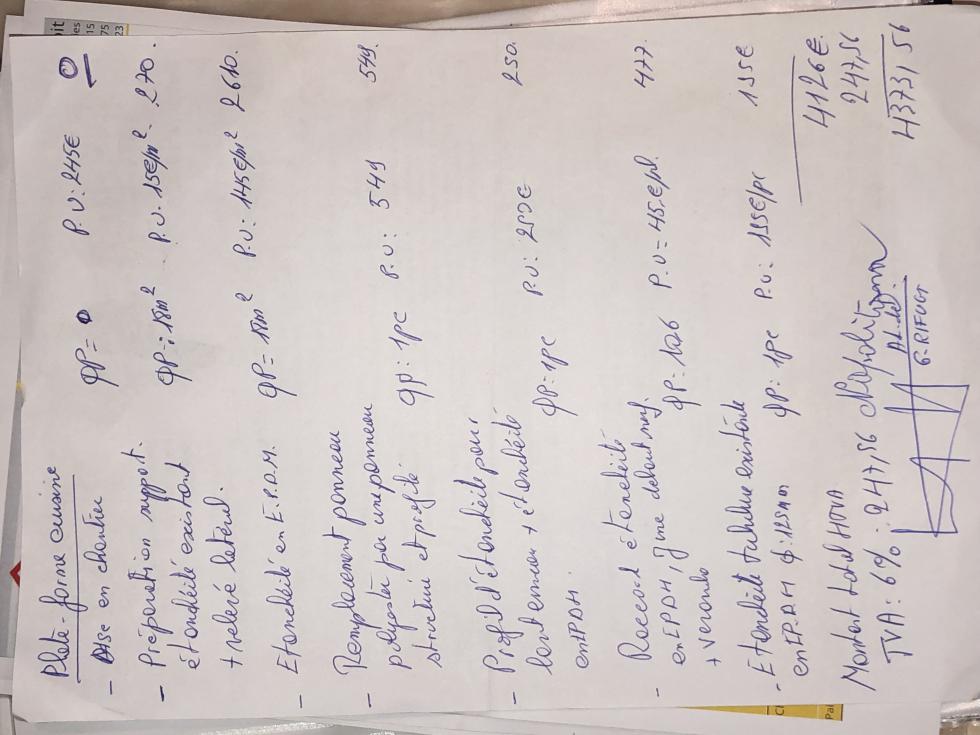 Plate-forme cuisine
- Mise en chantier QP = 0 P.U: 245€ 0
- Préparation support. étanchéité existant + relevé latéral. QP: 18m² P.U. 15€/m². 270.
- Etanchéité en E.P.D.M. QP = 18m² P.U: 145€/m² 2610.
- Remplacement panneau polyester par un panneau structuré et profilé QP: 1pc P.U: 549 549.
- Profil d'étanchéité pour lanterneau + étanchéité en EPDM. QP = 1pc P.U: 250€ 250.
- Raccord étanchéité en EPDM, débord neuf. + Veranda QP = 10,6 P.U = 45€/ml. 477.
- Etanchéité tubulure existante en EPDM φ: 125mm QP: 1pc P.U: 155€/pc 155€
Montant total HTVA 4126€.
TVA: 6% : 247,56 247,56
4373,56